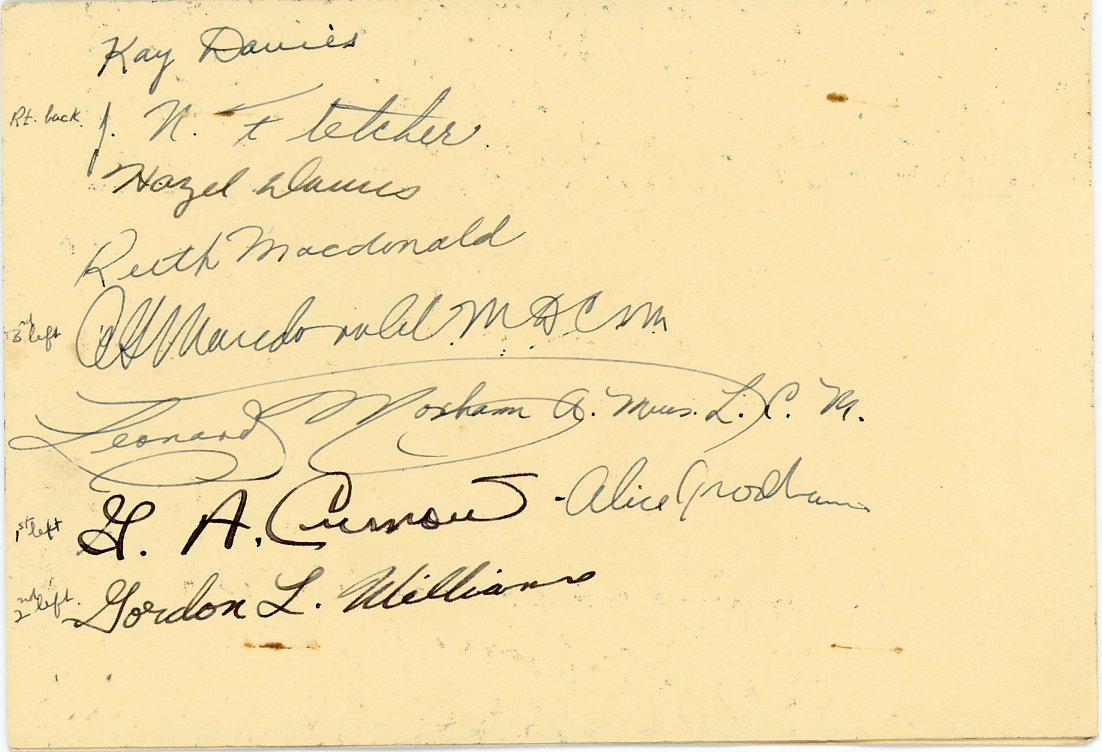 Kay Davies
Rt. back. J. N. Fletcher.
Hazel Davies
Ruth Macdonald
3rd left Macdonald M.D.C.M.
Leonard A. Mus. L. C. M.
1st left A. Curnow - Alice
2nd left. Gordon L. Williams